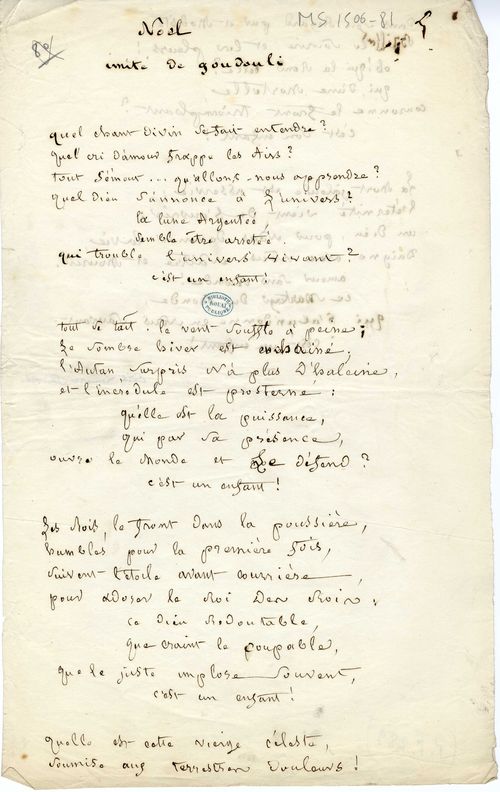 MS 1506-81
Noël
imité de goudouli
quel chant divin se fait entendre?
quel cri d'amour frappe les Airs?
tout s'émeut... qu'allons-nous apprendre?
quel Dieu s'annonce à L'univers?
la lune Argentée,
semble être arretée.
qui trouble l'univers Vivant?
c'est un enfant!
tout se tait; le vent souffle à peine;
Le sombre hiver est enchaîné;
l'Autan surpris N'à plus D'haleine,
et l'incrédule est prosterné:
quelle est la puissance,
qui par sa présence,
ouvre le Monde et Le défend?
c'est un enfant!
Les Rois, le front dans la poussière,
humbles pour la première fois,
suivent l'étoile avant courrière,
pour adorer le Roi Des Rois;
ce Dieu Redoutable,
que craint le coupable,
que le juste implore souvent,
c'est un enfant!
quelle est cette vierge céleste,
soumise aux terrestres Douleurs!